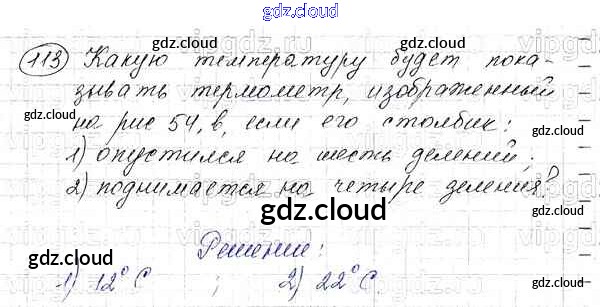 gdz.cloud
gdz.cloud gdz.cloud
113 Какую температуру будет пока-
зывать термометр, изображенный
gdz.cloud gdz.cloud gdz.cloud
на рис 54, в, если его столбик:
1) опустился на шесть делений;
2) поднимается на четыре деления?
gdz.cloud gdz.cloud
gdz.cloud
Решение:
gdz.cloud gdz.cloud
1) 12° С ; 2) 22° С.
gdz.cloud